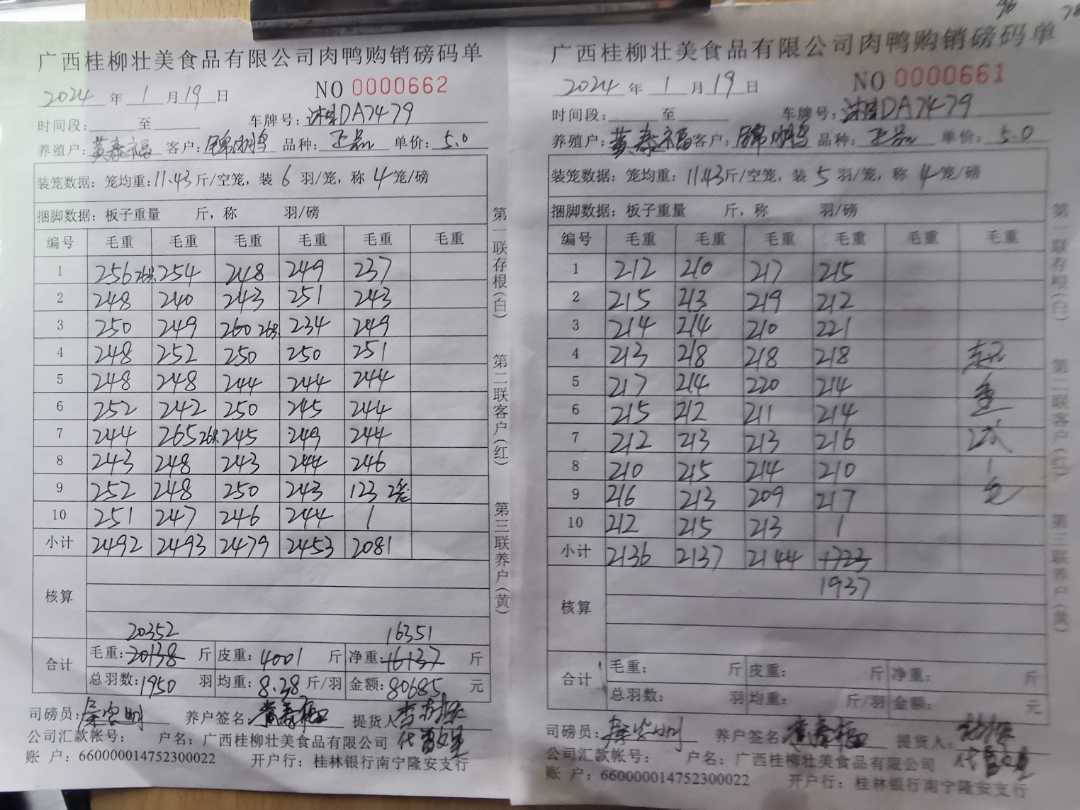 广西桂柳壮美食品有限公司肉鸭购销磅码单
2024 年 1 月 19 日 NO 0000662
时间段: 至 车牌号: DA7479
养殖户: 黄春福 客户: 品种: 正品 单价: 5.0
装笼数据: 笼均重: 11.43 斤/空笼, 装 6 羽/笼, 称 4 笼/磅
捆脚数据: 板子重量 斤, 称 羽/磅
编号 毛重 毛重 毛重 毛重 毛重 毛重
1 256 268 254 248 249 237
2 248 240 243 251 243
3 250 249 260 268 234 249
4 248 252 250 250 251
5 248 248 244 244 244
6 252 242 250 245 244
7 244 265 268 245 249 244
8 243 248 243 244 246
9 252 248 250 243 123 2笼
10 251 247 246 244 /
小计 2492 2493 2479 2453 2081
核算
20352 16351
合计 毛重: 20138 斤 皮重: 4001 斤 净重: 16137 斤
总羽数: 1950 羽 均重: 8.38 斤/羽 金额: 80685 元
司磅员: 养户签名: 黄春福 提货人:
公司汇款帐号: 户名: 广西桂柳壮美食品有限公司
账 户: 660000014752300022 开户行: 桂林银行南宁隆安支行
第一联存根(白)
第二联客户(红)
第三联养户(黄)
广西桂柳壮美食品有限公司肉鸭购销磅码单
2024 年 1 月 19 日 NO 0000661
时间段: 至 车牌号: DA7479
养殖户: 黄春福 客户: 品种: 正品 单价: 5.0
装笼数据: 笼均重: 11.43 斤/空笼, 装 5 羽/笼, 称 4 笼/磅
捆脚数据: 板子重量 斤, 称 羽/磅
编号 毛重 毛重 毛重 毛重 毛重 毛重
1 212 210 217 215
2 215 213 219 212
3 214 214 210 221
4 213 218 218 218
5 217 214 220 214
6 215 212 211 214
7 212 213 213 216
8 210 215 214 210
9 216 213 209 217
10 212 215 213 /
小计 2136 2137 2144 1723
1937
核算
合计 毛重: 斤 皮重: 斤 净重: 斤
总羽数: 羽 均重: 斤/羽 金额: 元
司磅员: 养户签名: 黄春福 提货人:
公司汇款帐号: 户名: 广西桂柳壮美食品有限公司
账 户: 660000014752300022 开户行: 桂林银行南宁隆安支行
第一联存根(白)
第二联客户(红)
第三联养户(黄)